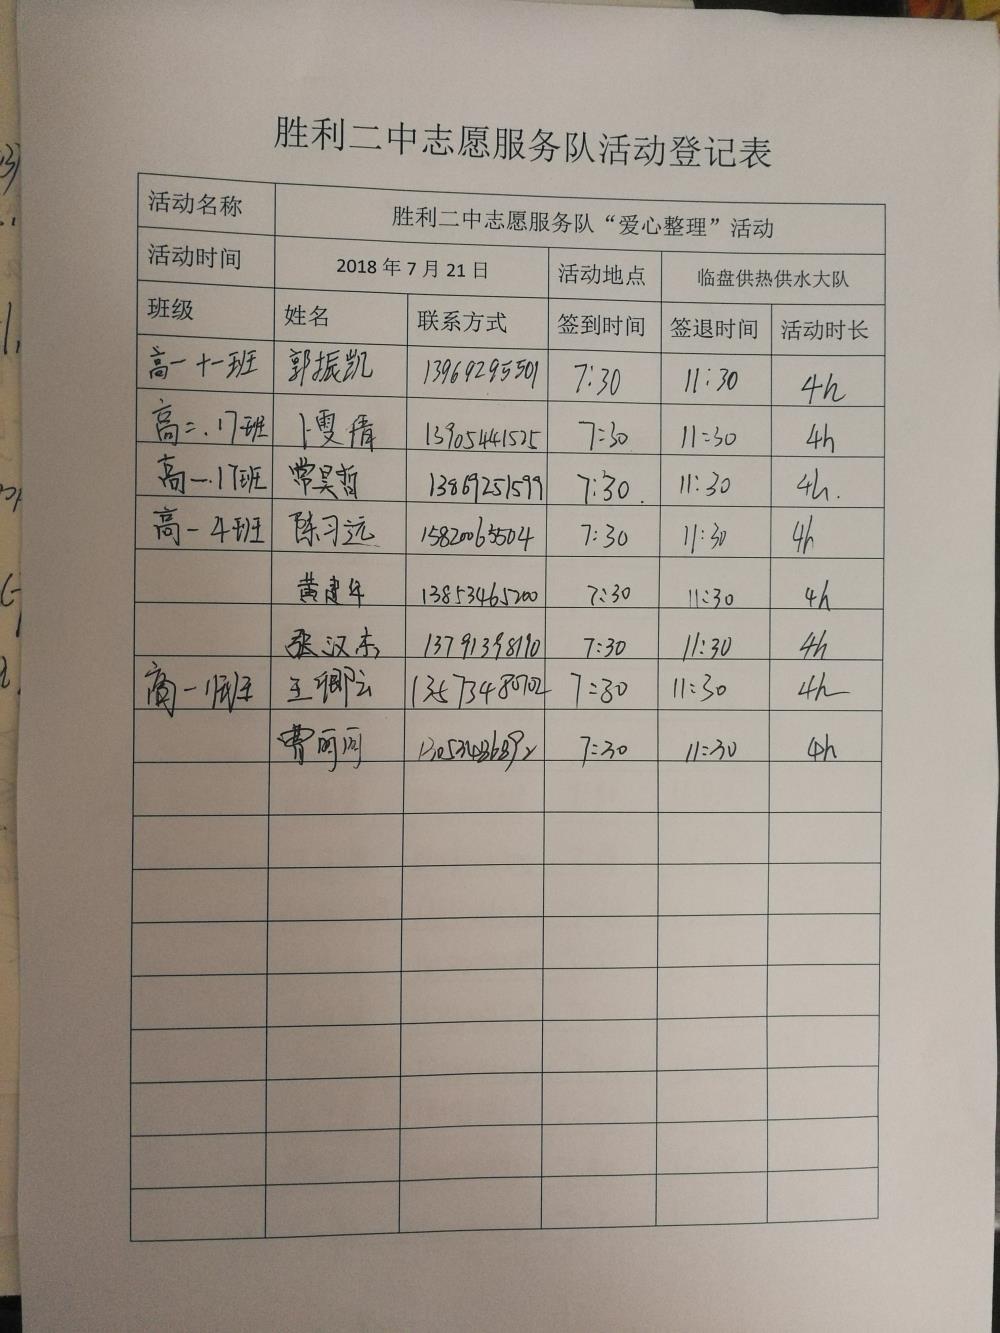 胜利二中志愿服务队活动登记表
活动名称 胜利二中志愿服务队“爱心整理”活动
活动时间 2018 年 7 月 21 日 活动地点 临盘供热供水大队
班级 姓名 联系方式 签到时间 签退时间 活动时长
高一十一班 郭振凯 13969295501 7:30 11:30 4h
高二.17班 卜雯倩 13905441525 7:30 11:30 4h
高一.17班 常昊哲 13869251599 7:30. 11:30 4h.
高一4班 陈习远 15820065504 7:30 11:30 4h
黄建年 13853465200 7:30 11:30 4h
张汉杰 13791398190 7:30 11:30 4h
高一 王卿云 13573480702 7:30 11:30 4h
曹 7:30 11:30 4h